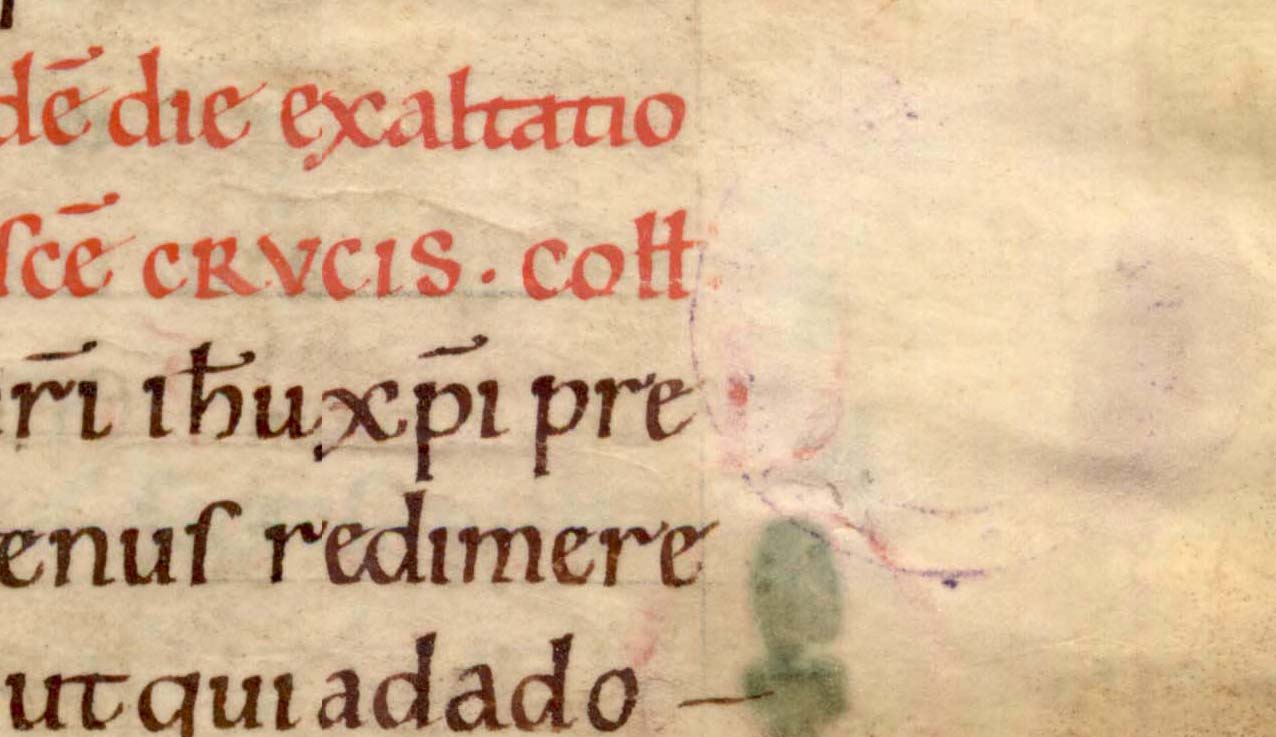 dē die exaltatio
ſcē CRVCIS. coll
n̄ri ihu xp̄i pre
enuſ redimere
ut qui adado –